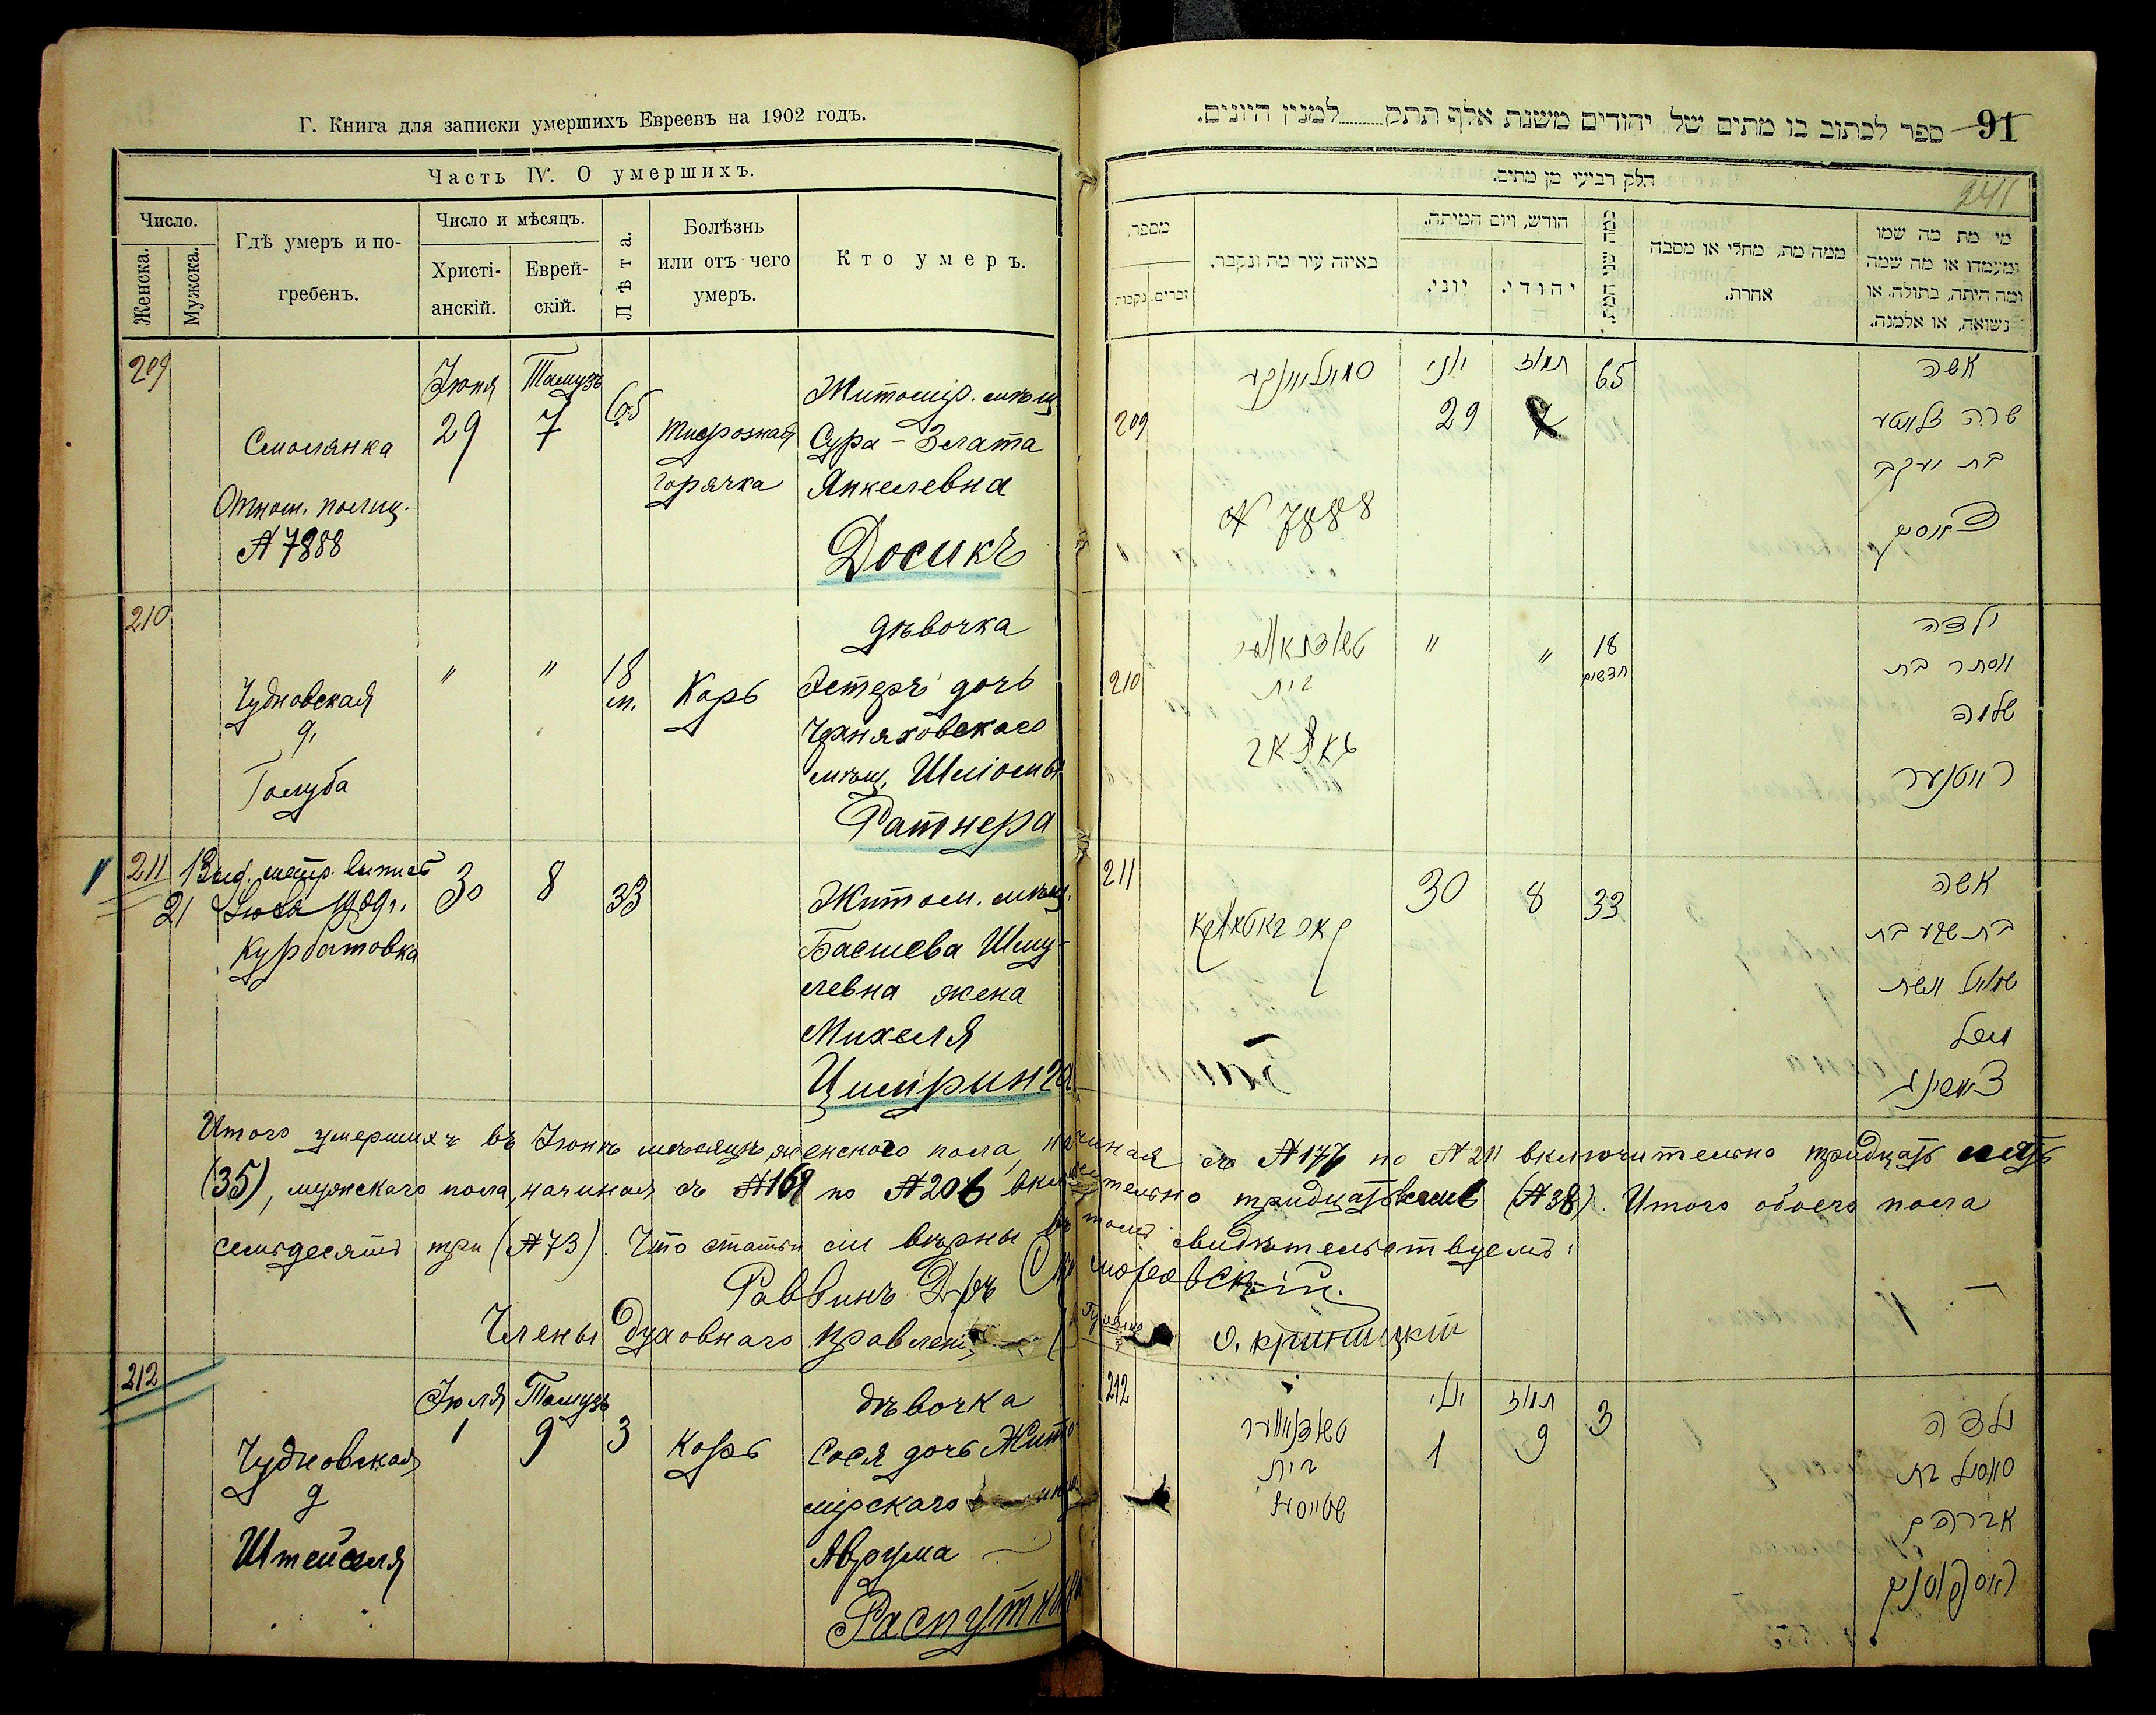 Г. Книга для записки умершихъ Евреевъ на 1902 годъ.
Часть IV. О умершихъ.
Число.
Женска.
Мужска.
Гдѣ умеръ и по-
гребенъ.
Число и мѣсяцъ.
Христі-
анскій.
Еврей-
скій.
Лѣта.
Болѣзнь
или отъ чего
умеръ.
Кто умеръ.
209
Смолянка
Отнош. полиц.
№ 7888
Іюня
29
Тамузъ
7
65
горячка
Житомір. мѣщ.
Сура - Злата
Янкелевна
Досикъ
210
Чудновская
д.
Голуба
"
"
18
м.
Корь
дѣвочка
Эстеръ дочь
Черняховского
мѣщ. Шліомы
Ратнера
211
21
1909 г.
Курбатовка
30
8
33
Житом. мѣщ.
Басшева Шму-
левна жена
Михеля
Итого умершихъ въ Іюнѣ мѣсяцѣ женского пола, начиная съ № 177 по № 211 включительно тридцать пять
(35), мужскаго пола, начиная съ № 169 по № 206 включительно тридцать восемь (№ 38). Итого обоего пола
семьдесятъ три (№ 73). Что статьи сіи вѣрны въ томъ свидѣтельствуемъ:
Раввинъ Д-ръ Скоморовскій.
Члены Духовнаго Правленія
О. Криницкій
212
Чудновская
д
Штейселя
Іюля
1
Тамузъ
9
3
Корь
дѣвочка
Сося дочь Жито-
мірскаго
Аврума
Распуткина
91
ספר לכתוב בו מתים של יהודים משנת אלף תתק למנין היונים.
241
חלק רביעי מן מתים.
מספר.
זכרים.
נקבות
באיזה עיר מת ונקבר.
חודש, ויום המיתה.
יוני.
יהודי.
כמה שני המת.
ממה מת, מחלי או מסבה
אחרת.
מי מת מה שמו
ומעמדו או מה שמה
ומה היתה, בתולה, או
נשואה, או אלמנה.
209
סמוליאנקע
№ 7888
יוני
29
תמוז
65
אשה
שרה זלאטע
בת יעקב
210
בית
"
"
18
חדשים
ילדה
אסתר בת
שלמה
ראטנער
211
30
8
33
אשה
בת שבע בת
שמואל אשת
212
בית
יולי
1
תמוז
9
3
ילדה
אברהם